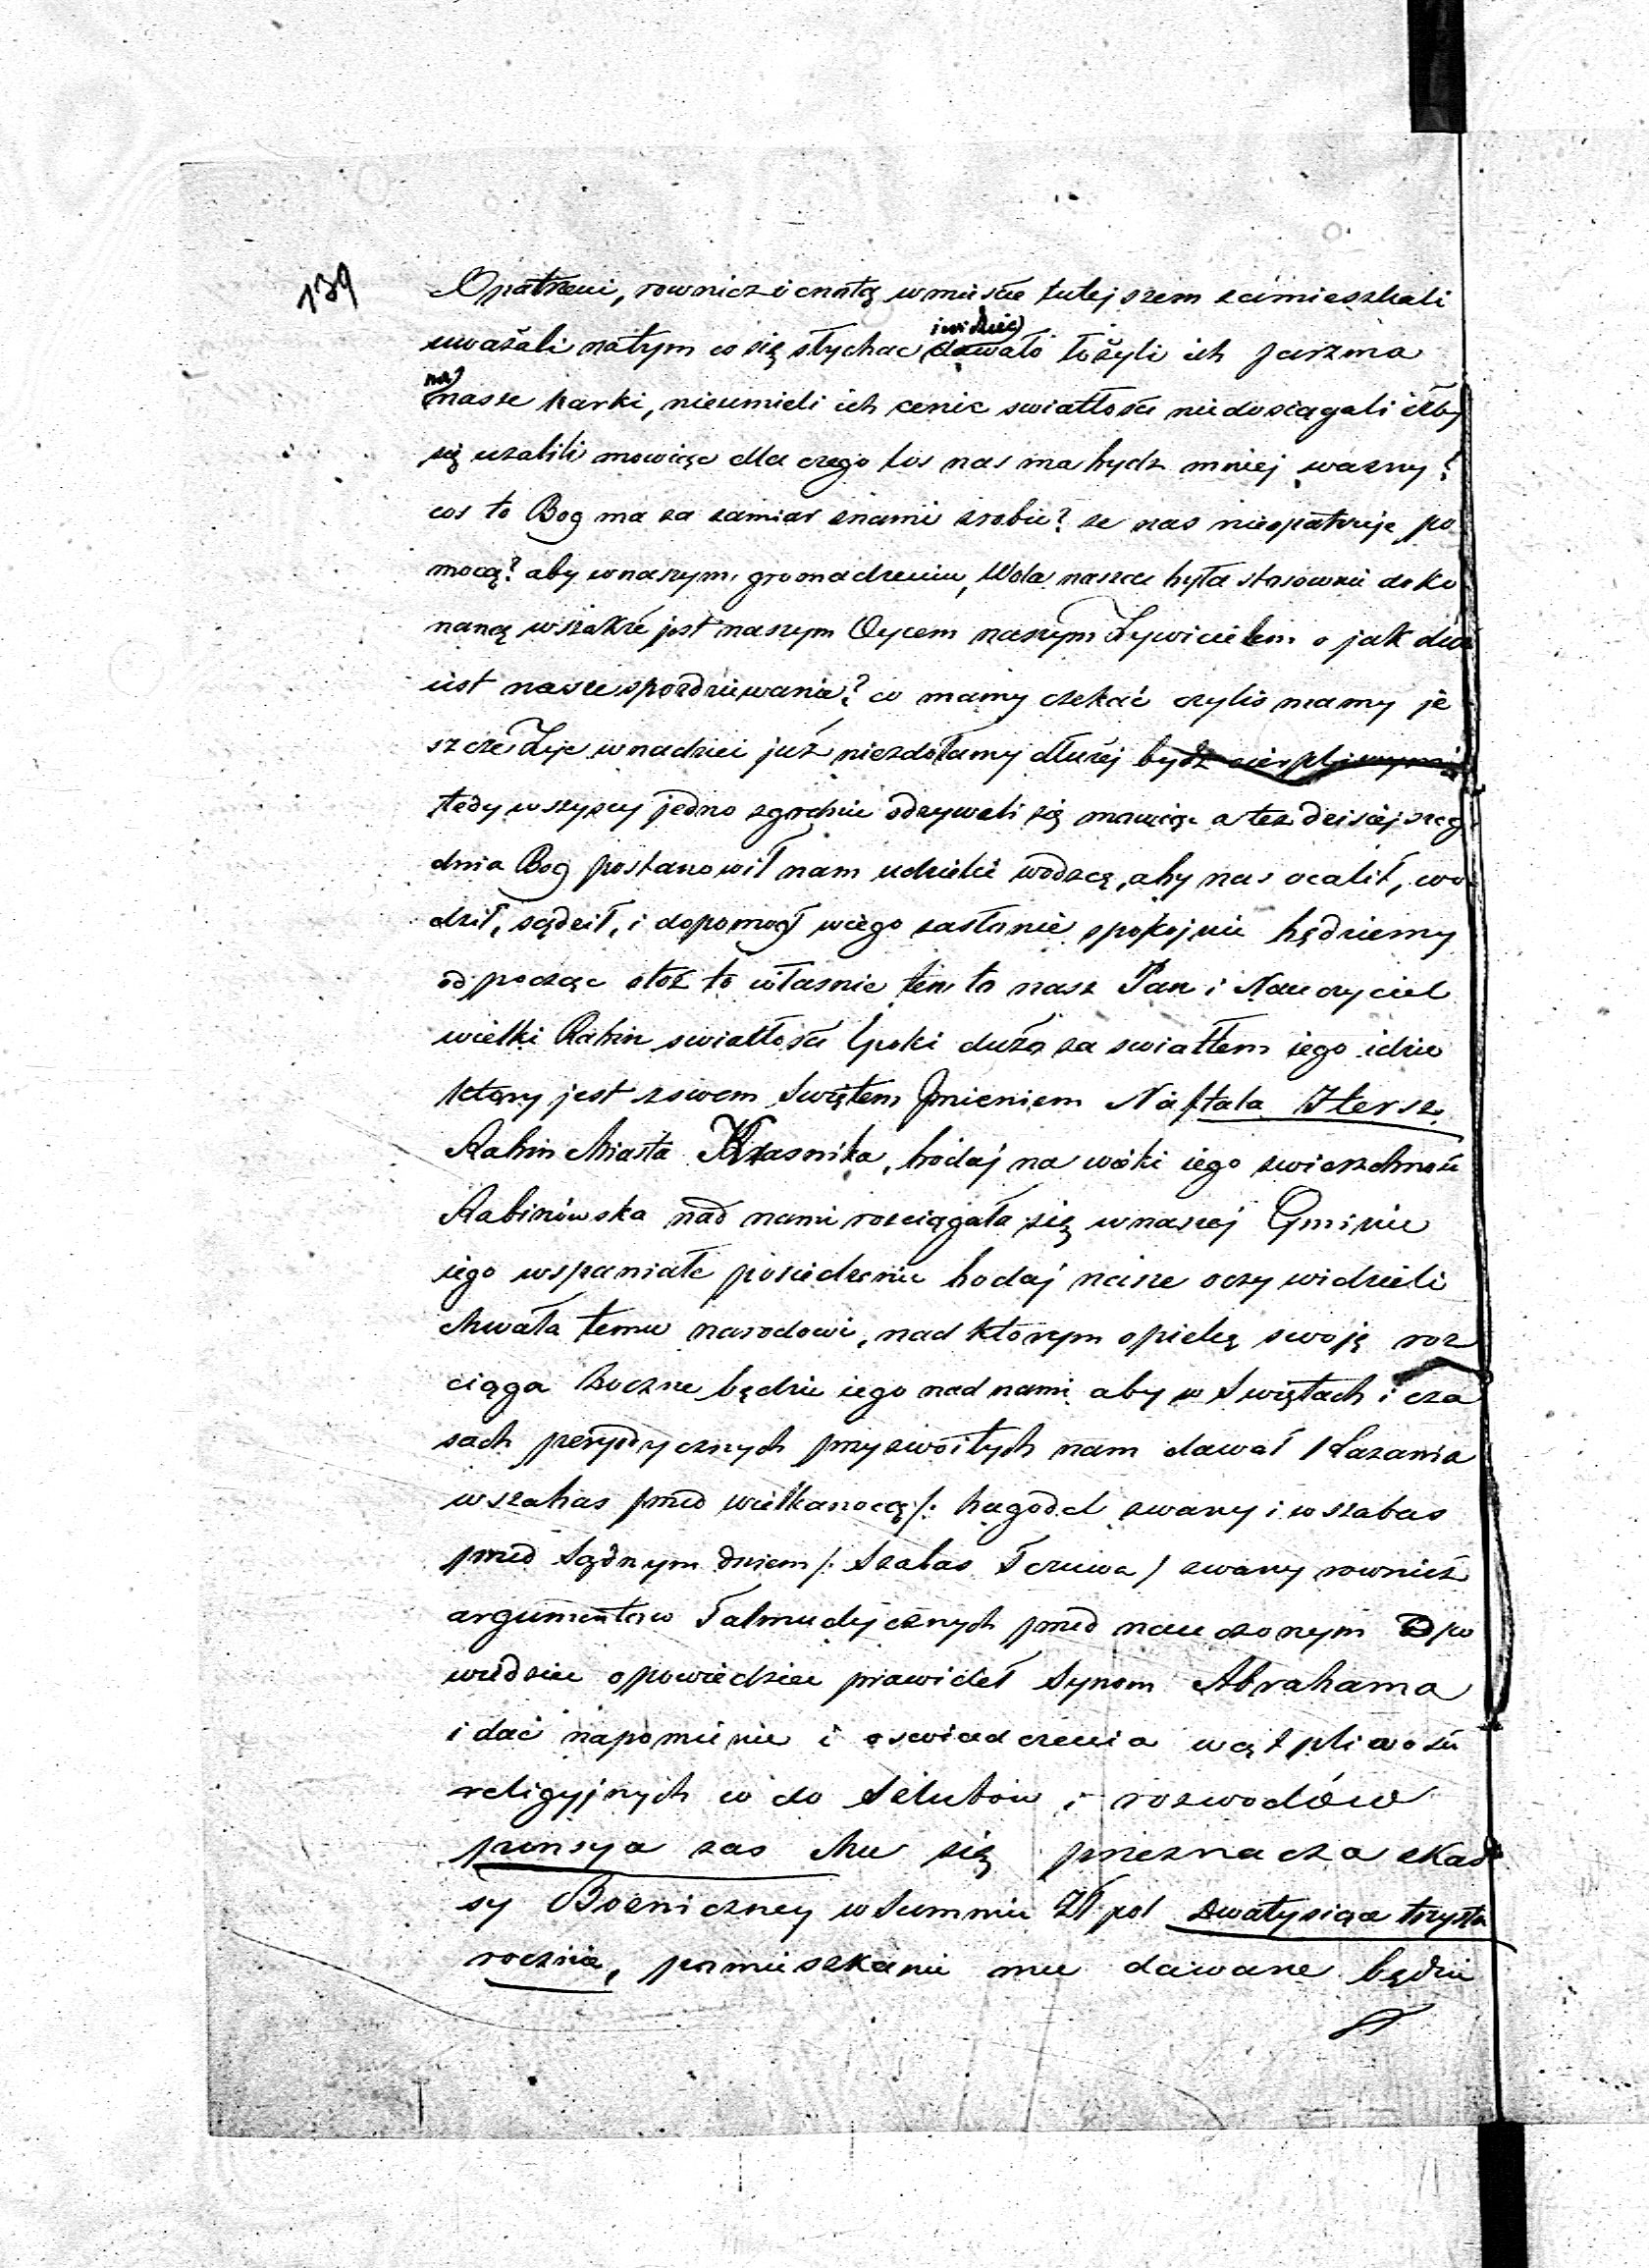 139
Opatrzeni, rownicz i cnotą w mieście tutejszem zamieszkali
uważali natym co się słychac i widziec dawało łożyli ich Jarzma
na nasze karki, nieumieli ich cenic swiatłości niedosiągali iżby
się uzalili mowiąc dla czego los nas ma bydz mniej wazny?
cos to Bog ma za zamiar znami zrobic? ze nas nieopatruje po
mocą? aby wnaszym gromadzeniu, Wola nasza była stosownie doko
naną wszakże jest naszym Oycem naszym Zywicielem o jak
iest nasze spodziewanie? co mamy czekać czyliz mamy je
szcze Zyc wnadziei już niezdołamy dłużej bydz cierpliwymi
tedy wszyscy jedno zgodnie odzywali się mowiąc a też dzisiejszeg
dnia Bog postanowił nam udzielic wodzcę, aby nas ocalił, wo
dził, sądził, i dopomogł wiego zasłonie spokojnie będziemy
odpocząc otoż to własnie ten to nasz Pan i Nauczyciel
wielki Rabin swiatłości Epoki duża za swiatłem iego idzie
ktory jest zowem Swiętem Jmieniem Naftala Hersz
Rabin Miasta Krasnika, bodaj na wieki iego zwierzchność
Rabinówska nad nami rosciągała się wnaszej Gminie
iego wspaniałe posiedzenie bodaj nasze oczy widzieli
chwała temu narodowi, nad ktorym opiekę swoję roz
ciąga Boczne będzie iego nad nami aby w Swiętach i cza
sach peryodycznych przyzwoitych nam dawał Kazania
w szabas przed wielkanocą /: hagodel zwany i w szabas
przed Sądnym dniem /: Szabas Tszuwa / zwany rownież
argumentow Talmudycznych przed nauczonym Odpo
wiedziec opowiedziec prawideł Synom Abrahama
i dać napomnienie i oswiadczenia wątpliwości
religyjnych co do Slubow i rozwodów
pensya zas Mu się przeznacza zkas
sy Bozniczney w Summie Zł. pol dwatysiące trzysta
rocznie, pomieszkanie mu dawane będzie